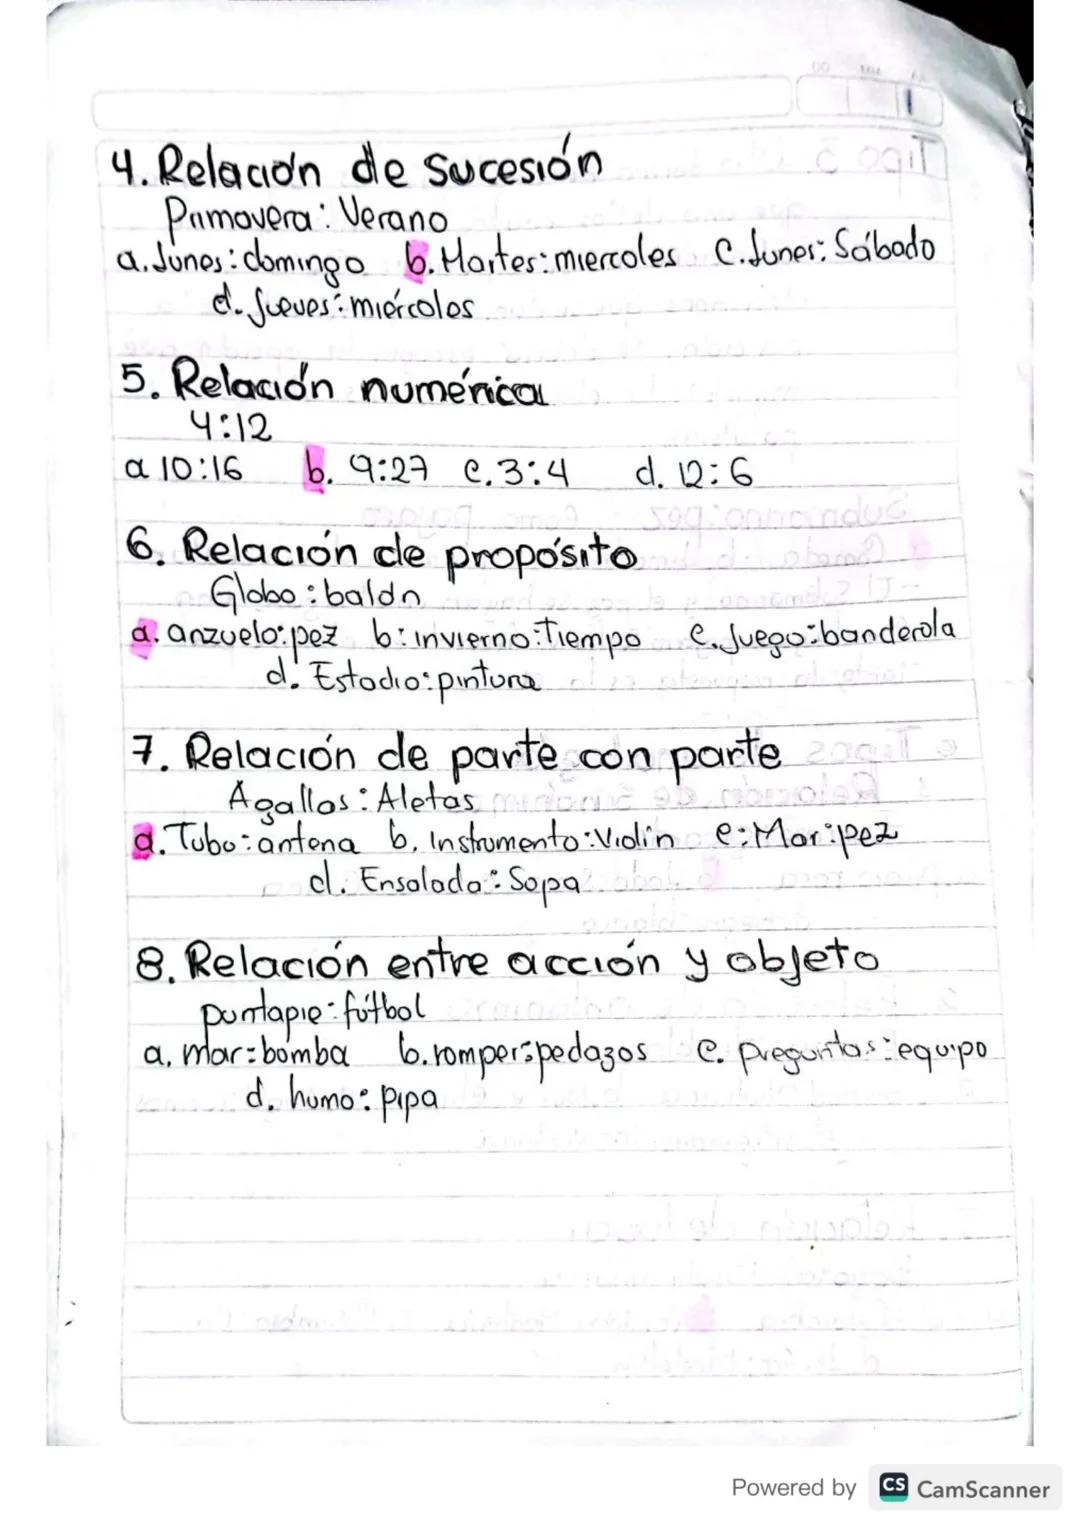 4. Relación de sucesión
Primavera: Verano
a. lunes: domingo b. Martes: miercoles C. lunes: Sábado
d. Jueves: miércoles
5. Relación numérica
4:12
a 10:16 b. 9:27 c. 3:4 d. 12:6
6. Relación de propósito
Globo: balón
a. anzuelo: pez b: invierno: Tiempo c. Juego: banderola
d. Estadio: pintura
7. Relación de parte con parte
Agallas: Aletas
a. Tubo: antena b. Instrumento: Violín c: Mar: pez
d. Ensalada: Sopa
8. Relación entre acción y objeto
puntapie: fútbol
a. mar: bomba b. romper: pedazos c. preguntas: equipo
d. humo: pipa
Powered by CS CamScanner